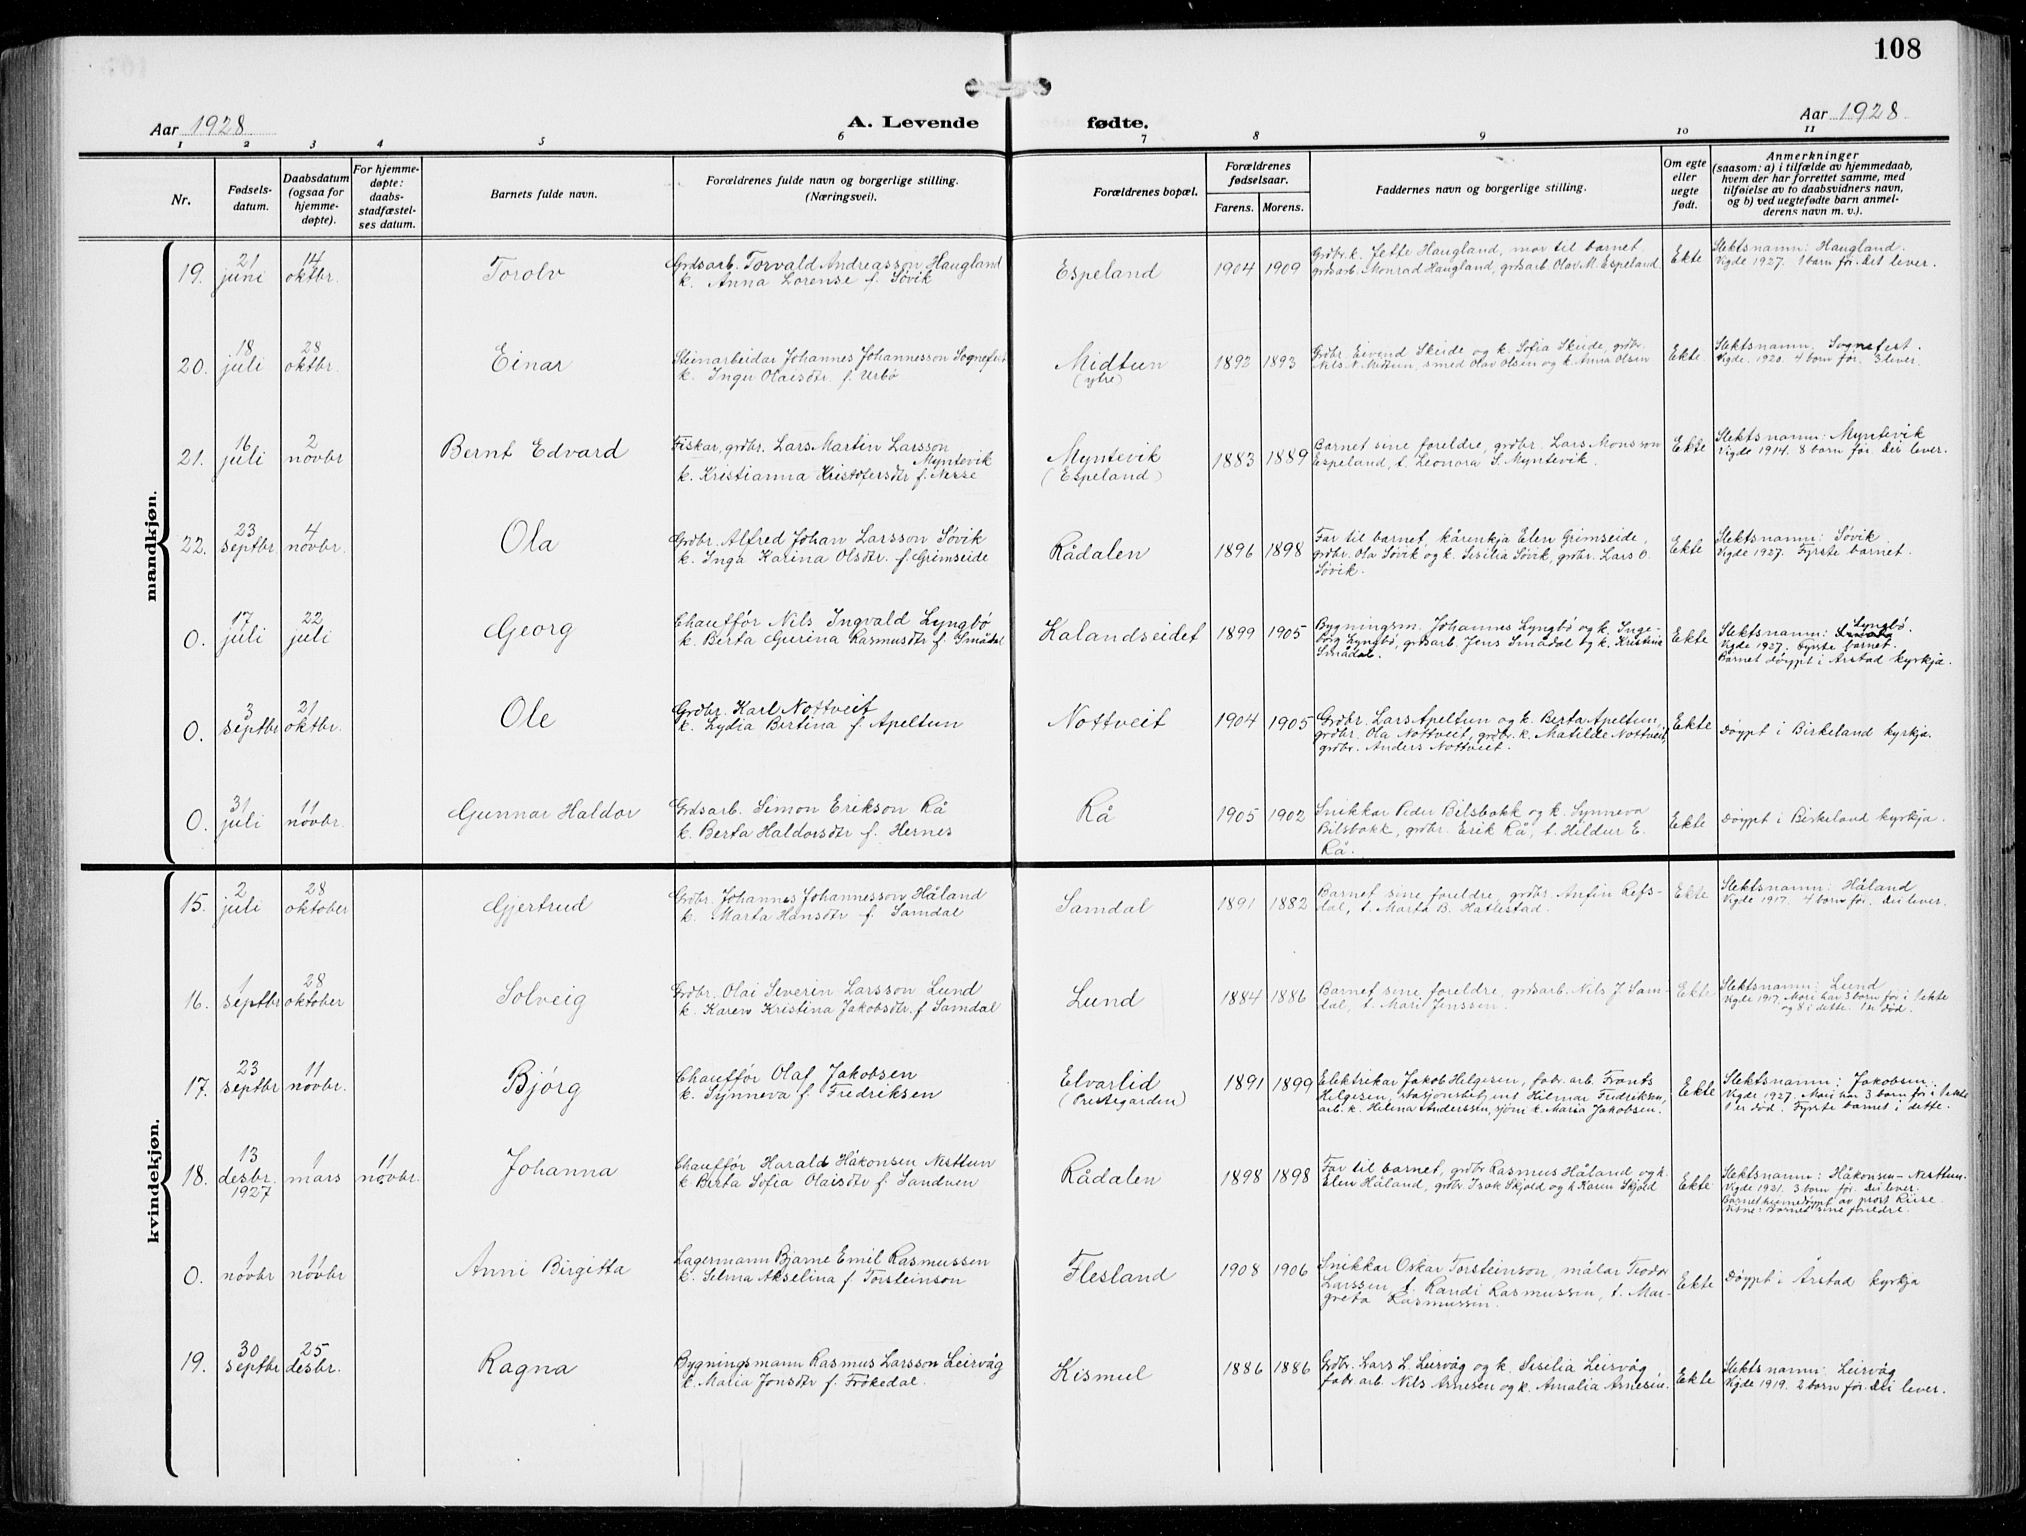 108
Aar 1928
A. Levende fødte.
Aar 1928
1 2 3 4 5 6 7 8 9 10 11
Nr.
Fødsels-
datum.
Daabsdatum
(ogsaa for
hjemme-
døpte).
For hjemme-
døpte:
daabs-
stadfæstel-
ses datum.
Barnets fulde navn.
Forældrenes fulde navn og borgerlige stilling.
(Næringsvei).
Forældrenes bopæl.
Forældrenes
fødselsaar.
Farens. Morens.
Faddernes navn og borgerlige stilling.
Om egte
eller
uegte
født.
Anmerkninger
(saasom: a) i tilfælde av hjemmedaab,
hvem der har forrettet samme, med
tilføielse av to daabsvidners navn,
og b) ved uegtefødte barn anmel-
derens navn m. v.).
mandkjøn.
19.
21
juni
14
oktbr.
Torolv
Grdsarb. Torvald Andreasson Haugland
k. Anna Lorense f. Søvik
Espeland
1904 1909
Grdbr.k. Jette Haugland, mor til barnet,
grdsarb. Monrad Haugland, grdsarb. Olav M. Espeland.
Ekte
Slektsnamn: Haugland.
Vigde 1927. 1 born før. Det lever.
20.
18
juli
28
oktbr.
Einar
Steinarbeidar Johannes Johannesson Sognefest
k. Inger Olaisdtr. f. Urbø
Midtun
(ytre)
1892 1893
Grdbr. Eivend Skeide og k. Sofia Skeide, grdbr.
Nils N. Midtun, smed Olav Olsen og k. Anna Olsen
Ekte
Slektsnamn: Sognefest.
Vigde 1920. 4 born før. 3 lever.
21.
16
juli
2
novbr
Bernt Edvard
Fiskar, grdbr. Lars Martin Larsson
Myntevik
k. Kristianna Kristofersdtr f. Nesse
Myntevik
(Espeland)
1883 1889
Barnet sine foreldre, grdbr. Lars Monsson
Espeland, t. Leonora S. Myntevik.
Ekte
Slektsnamn: Myntevik
Vigde 1914. 8 born før. Dei lever.
22.
23
septbr.
4
novbr.
Ola
Grdbr. Alfred Johan Larsson Søvik
k. Inga Karina Olsdtr. f. Grimseide
Rådalen
1896 1898
Far til barnet, kårenkja Elen Grimseide,
grdbr. Ola Søvik og k. Sesilia Søvik, grdbr. Lars O.
Søvik.
Ekte
Slektsnamn: Søvik
Vigde 1927. Fyrste barnet.
0.
17
juli
22
juli
Georg
Chauffør Nils Ingvald Lyngbø
k. Berta Gurina Rasmusdtr f. Smådal
Kalandseidet
1899 1905
Bygningsm. Johannes Lyngbø og k. Inge-
borg Lyngbø, grdsarb. Jens Smådal og k. Kristine
Smådal.
Ekte
Slektsnamn: Lyngbø.
Vigde 1927. Fyrste barnet.
Barnet døypt i Årstad kyrkja.
0.
3
septbr
21
oktbr.
Ole
Grdbr. Karl Nottveit
k. Lydia Bertina f. Apeltun
Nottveit
1904 1905
Grdbr. Lars Apeltun og k. Berta Apeltun,
grdbr. Ola Nottveit, grdbr. k. Matilde Nottveit,
grdbr. Anders Nottveit.
Ekte
døypt i Birkeland kyrkja.
0.
31
juli
11
novbr.
Gunnar Haldor
Grdsarb. Simon Erikson Rå
k. Berta Haldorsdtr f. Hernes
Rå
1905 1902
Snikkar Peder Bilsbakk og k. Synneva
Bilsbakk, grdbr. Erik Rå, t. Hildur E.
Rå.
Ekte
døypt i Birkeland kyrkja.
kvindekjøn.
15.
2
juli
28
oktober
Gjertrud
Grdbr. Johannes Johannesson Håland
k. Marta Hansdtr f. Samdal
Samdal
1891 1882
Barnet sine foreldre, grdbr Anfin Refs-
dal, t. Marta B. Hatlestad.
Ekte
Slektsnamn: Håland
Vigde 1917. 4 born før. Dei lever.
16.
1
septbr
28
oktober
Solveig
Grdbr. Olai Severin Larsson Lund
k. Karen Kristina Jakobsdtr. f Samdal
Lund
1884 1886
Barnet sine foreldre, grdsarb. Nils J. Sam-
dal, t. Mari Jenssen.
Ekte
Slektsnamn: Lund
Vigde 1917. Mori har 3 born før i 1 ekte
og 8 i dette. 1 er død.
17.
23
septbr
11
novbr.
Bjørg
Chauffør Olaf Jakobsen
k. Synneva f. Fredriksen
Elvarlid
(Prestegarden)
1891 1899
Elektrikar Jakob Helgesen, fabr. arb. Frants
Helgesen, stasjonsbetjent Hilmar Fredriksen,
arb. k. Helena Anderssen, sjøm k. Maria Jakobsen.
Ekte
Slektsnamn: Jakobsen.
Vigde 1927. Mori har 3 born før i 1 ekte
1 er død. Fyrste barnet i dette.
18.
13
desbr.
1927
1
mars
11
novbr.
Johanna
Chauffør Harald Håkonsen Nesttun
k. Berta Sofia Olaisdtr f. Sandven
Rådalen
1898 1898
Far til barnet, grdbr Rasmus Håland og k.
Elen Håland, grdbr. Isak Skjold og k Karen Skjold
Ekte
Slektsnamn: Håkonsen-Nesttun.
Vigde 1921. 3 born før. Dei lever.
Barnet heimedøypt av prost Riise.
Vitne: Barnet sine foreldre.
0.
1
novbr
11
novbr
Anni Birgitta
Lagermann Bjarne Emil Rasmussen
k. Selma Akselina f Torsteinson
Flesland
1908 1906
Snikkar Oskar Torsteinson, målar Teodor
Larssen, t. Randi Rasmussen, t. Mar-
greta Rasmussen.
Ekte
døypt i Årstad kyrkja
19.
30
septbr
25
desbr.
Ragna
Bygningsmann Rasmus Larsson Leirvåg
k. Maria Jonsdtr f. Frøkedal.
Kismul
1886 1886
Grdbr. Lars L. Leirvåg og k. Sesilia Leirvåg
fabr. arb. Nils Arnesen og k. Amalia Arnesen.
Ekte
Slektsnamn: Leirvåg
Vigde 1919. 2 born før. Dei lever.